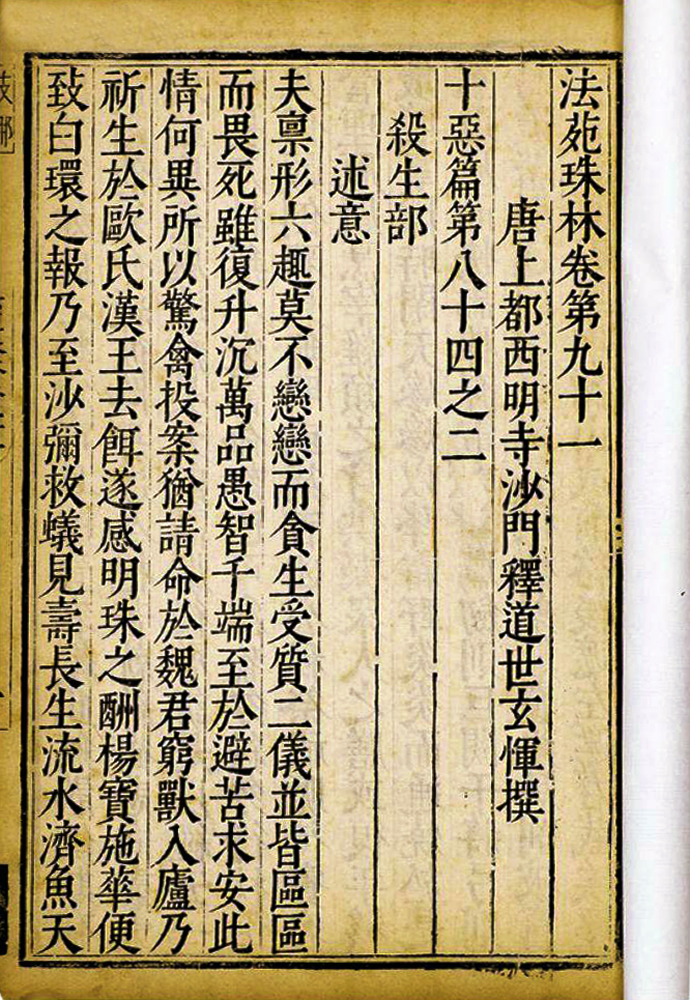 法苑珠林卷第九十一
唐上都西明寺沙門釋道世玄惲撰
十惡篇第八十四之二
殺生部
述意
夫稟形六趣莫不戀戀而貪生受質二儀並皆區區
而畏死雖復升沉萬品愚智千端至於避苦求安此
情何異所以驚禽投案猶請命於魏君窮獸入廬乃
祈生於歐氏漢王去餌遂感明珠之酬楊寶施華便
致白環之報乃至沙彌救蟻見壽長生流水濟魚天